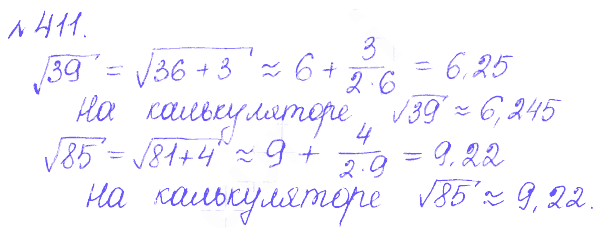 № 411.
√39 = √(36 + 3) ≈ 6 + 3/(2·6) = 6,25
На калькуляторе √39 ≈ 6,245
√85 = √(81+4) ≈ 9 + 4/(2·9) = 9,22
На калькуляторе √85 ≈ 9,22.